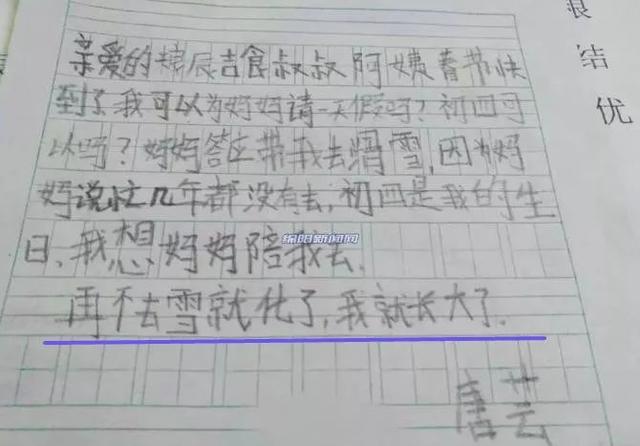 亲爱的粮辰吉食叔叔阿姨春节快
到了我可以为妈妈请一天假吗？初四可
以吗？妈妈答应带我去滑雪，因为妈
妈说忙几年都没有去，初四是我的生
日，我想妈妈陪我去，
再不去雪就化了，我就长大了．
唐芸
绵阳新闻网
结
优